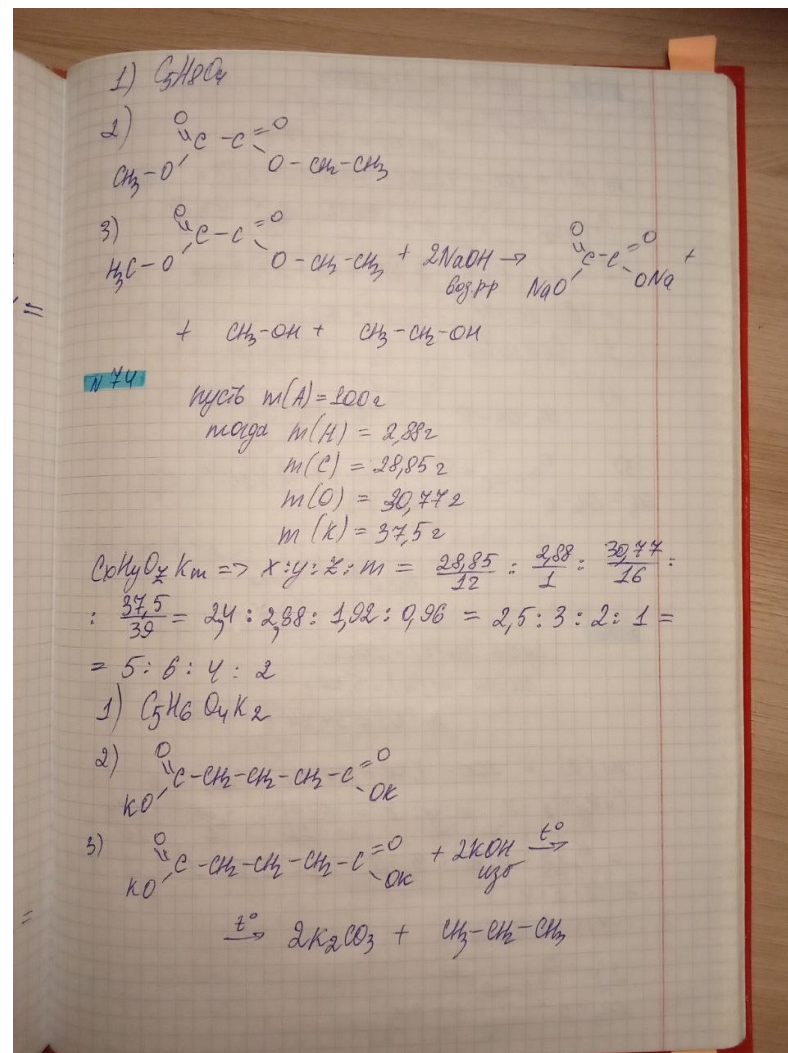 1) C5H8O4
2) O O
C - C
CH3-O O - CH2-CH3
3) O O
C - C
H3C - O O - CH2-CH3 + 2NaOH → O O
вод.р-р C - C +
NaO ONa
+ CH3-OH + CH3-CH2-OH
N 74
пусть m(A)=100г
тогда m(H) = 2,88г
m(C) = 28,85г
m(O) = 30,77г
m(K) = 37,5г
CxHyOzKm => x:y:z:m = 28,85/12 : 2,88/1 : 30,77/16 :
: 37,5/39 = 2,4 : 2,88 : 1,92 : 0,96 = 2,5 : 3 : 2 : 1 =
= 5 : 6 : 4 : 2
1) C5H6O4K2
2) O O
C-CH2-CH2-CH2-C
KO OK
3) O O
C-CH2-CH2-CH2-C + 2KOH t° →
KO OK изб
t° → 2K2CO3 + CH3-CH2-CH3